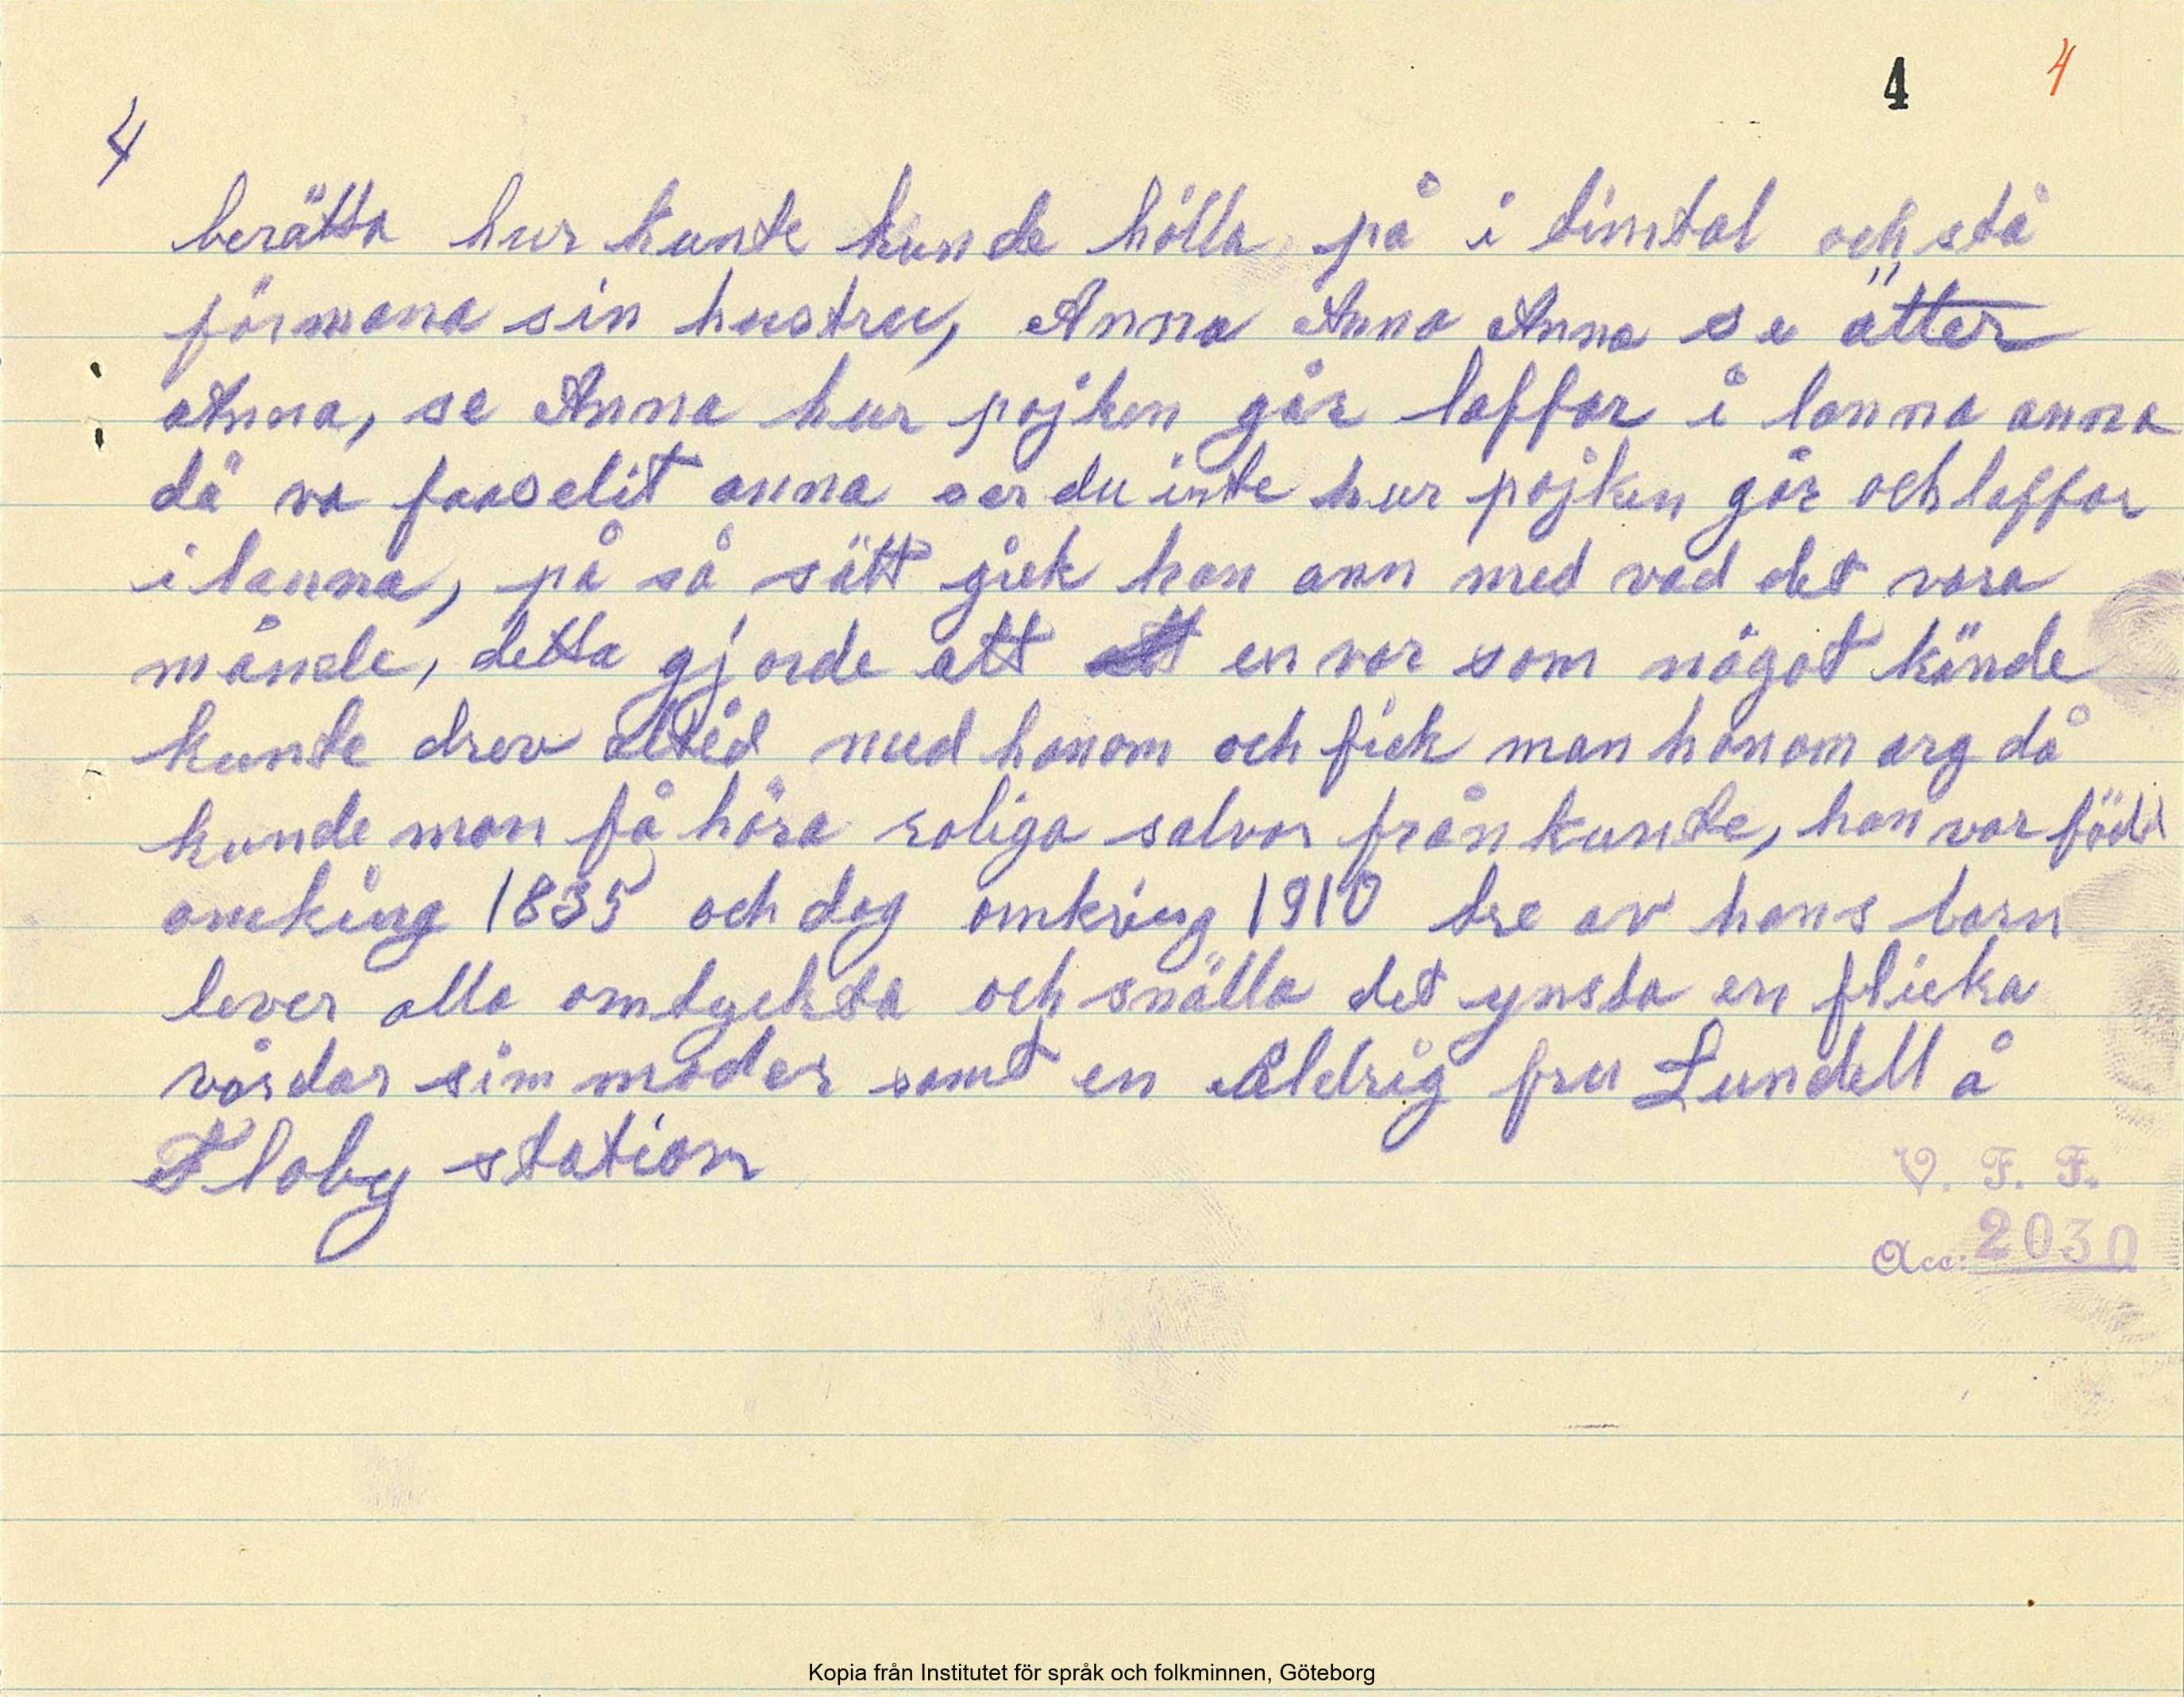 4 4
4
berätta hur kunte kunde hålla på i timtal och stå
förmana sin hustru, Anna Anna Anna se ätter
Anna, se Anna hur pojken går loffar i lanna anna
dä va faaselit anna ser du inte hur pojken går och loffar
i lanna, på så sätt gick han ann med vad det vara
månde, detta gjorde att en var som något kände
kunte drev altid med honom och fick man honom arg då
kunde man få höra roliga salvor från kunte, han var född
omking 1835 och dog omkring 1910 tre av hans barn
lever alla omtyckta och snälla det ynsta en flicka
vårdar sim moder samt en åldrig fru Lundell å
Floby station
V. F. F.
Acc: 2030
Kopia från Institutet för språk och folkminnen, Göteborg